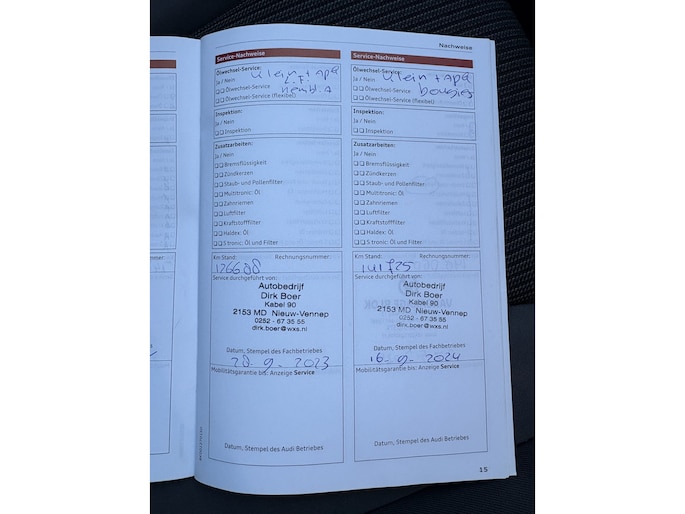 Nachweise
Service-Nachweise
Ölwechsel-Service:
Ja / Nein
Ölwechsel-Service
Ölwechsel-Service (flexibel)
Inspektion:
Ja / Nein
Inspektion
Zusatzarbeiten:
Ja / Nein
Bremsflüssigkeit
Zündkerzen
Staub- und Pollenfilter
Multitronic: Öl
Zahnriemen
Luftfilter
Kraftstofffilter
Haldex: Öl
S tronic: Öl und Filter
Km Stand: Rechnungsnummer:
126688
Service durchgeführt von:
Autobedrijf
Dirk Boer
Kabel 90
2153 MD Nieuw-Vennep
0252 - 67 35 55
dirk.boer@wxs.nl
Datum, Stempel des Fachbetriebes
28-9-2023
Mobilitätsgarantie bis: Anzeige Service
Datum, Stempel des Audi Betriebes
Service-Nachweise
Ölwechsel-Service:
klein + apk
Ja / Nein
Ölwechsel-Service
bougies
Ölwechsel-Service (flexibel)
Inspektion:
Ja / Nein
Inspektion
Zusatzarbeiten:
Ja / Nein
Bremsflüssigkeit
Zündkerzen
Staub- und Pollenfilter
Multitronic: Öl
Zahnriemen
Luftfilter
Kraftstofffilter
Haldex: Öl
S tronic: Öl und Filter
Km Stand: Rechnungsnummer:
141725
Service durchgeführt von:
Autobedrijf
Dirk Boer
Kabel 90
2153 MD Nieuw-Vennep
0252 - 67 35 55
dirk.boer@wxs.nl
Datum, Stempel des Fachbetriebes
16-9-2024
Mobilitätsgarantie bis: Anzeige Service
Datum, Stempel des Audi Betriebes
15